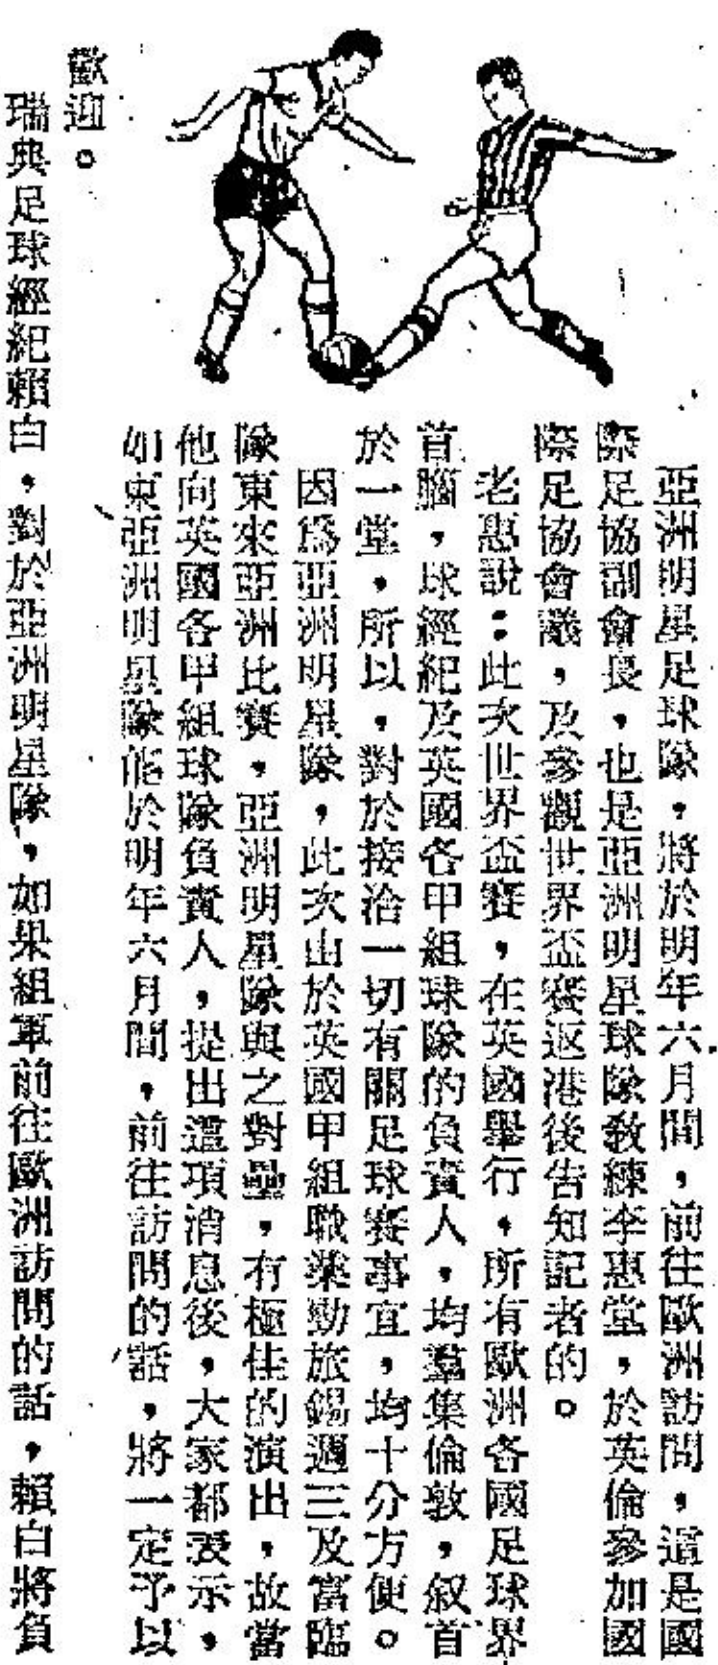 亞洲明星足球隊，將於明年六月間，前往歐洲訪問，這是國
際足協副會長，也是亞洲明星球隊教練李惠堂，於英倫參加國
際足協會議，及參觀世界盃賽返港後告知記者的。
老惠說：此次世界盃賽，在英國舉行，所有歐洲各國足球界
首腦，球經紀及英國各甲組球隊的負責人，均羣集倫敦，叙首
於一堂，所以，對於接洽一切有關足球賽事宜，均十分方便。
因爲亞洲明星隊，此次由於英國甲組職業勁旅錫週三及富臨
隊東來亞洲比賽，亞洲明星隊與之對壘，有極佳的演出，故當
他向英國各甲組球隊負責人，提出這項消息後，大家都表示，
如東亞洲明星隊能於明年六月間，前往訪問的話，將一定予以
歡迎。
瑞典足球經紀賴白，對於亞洲明星隊，如果組軍前往歐洲訪問的話，賴白將負